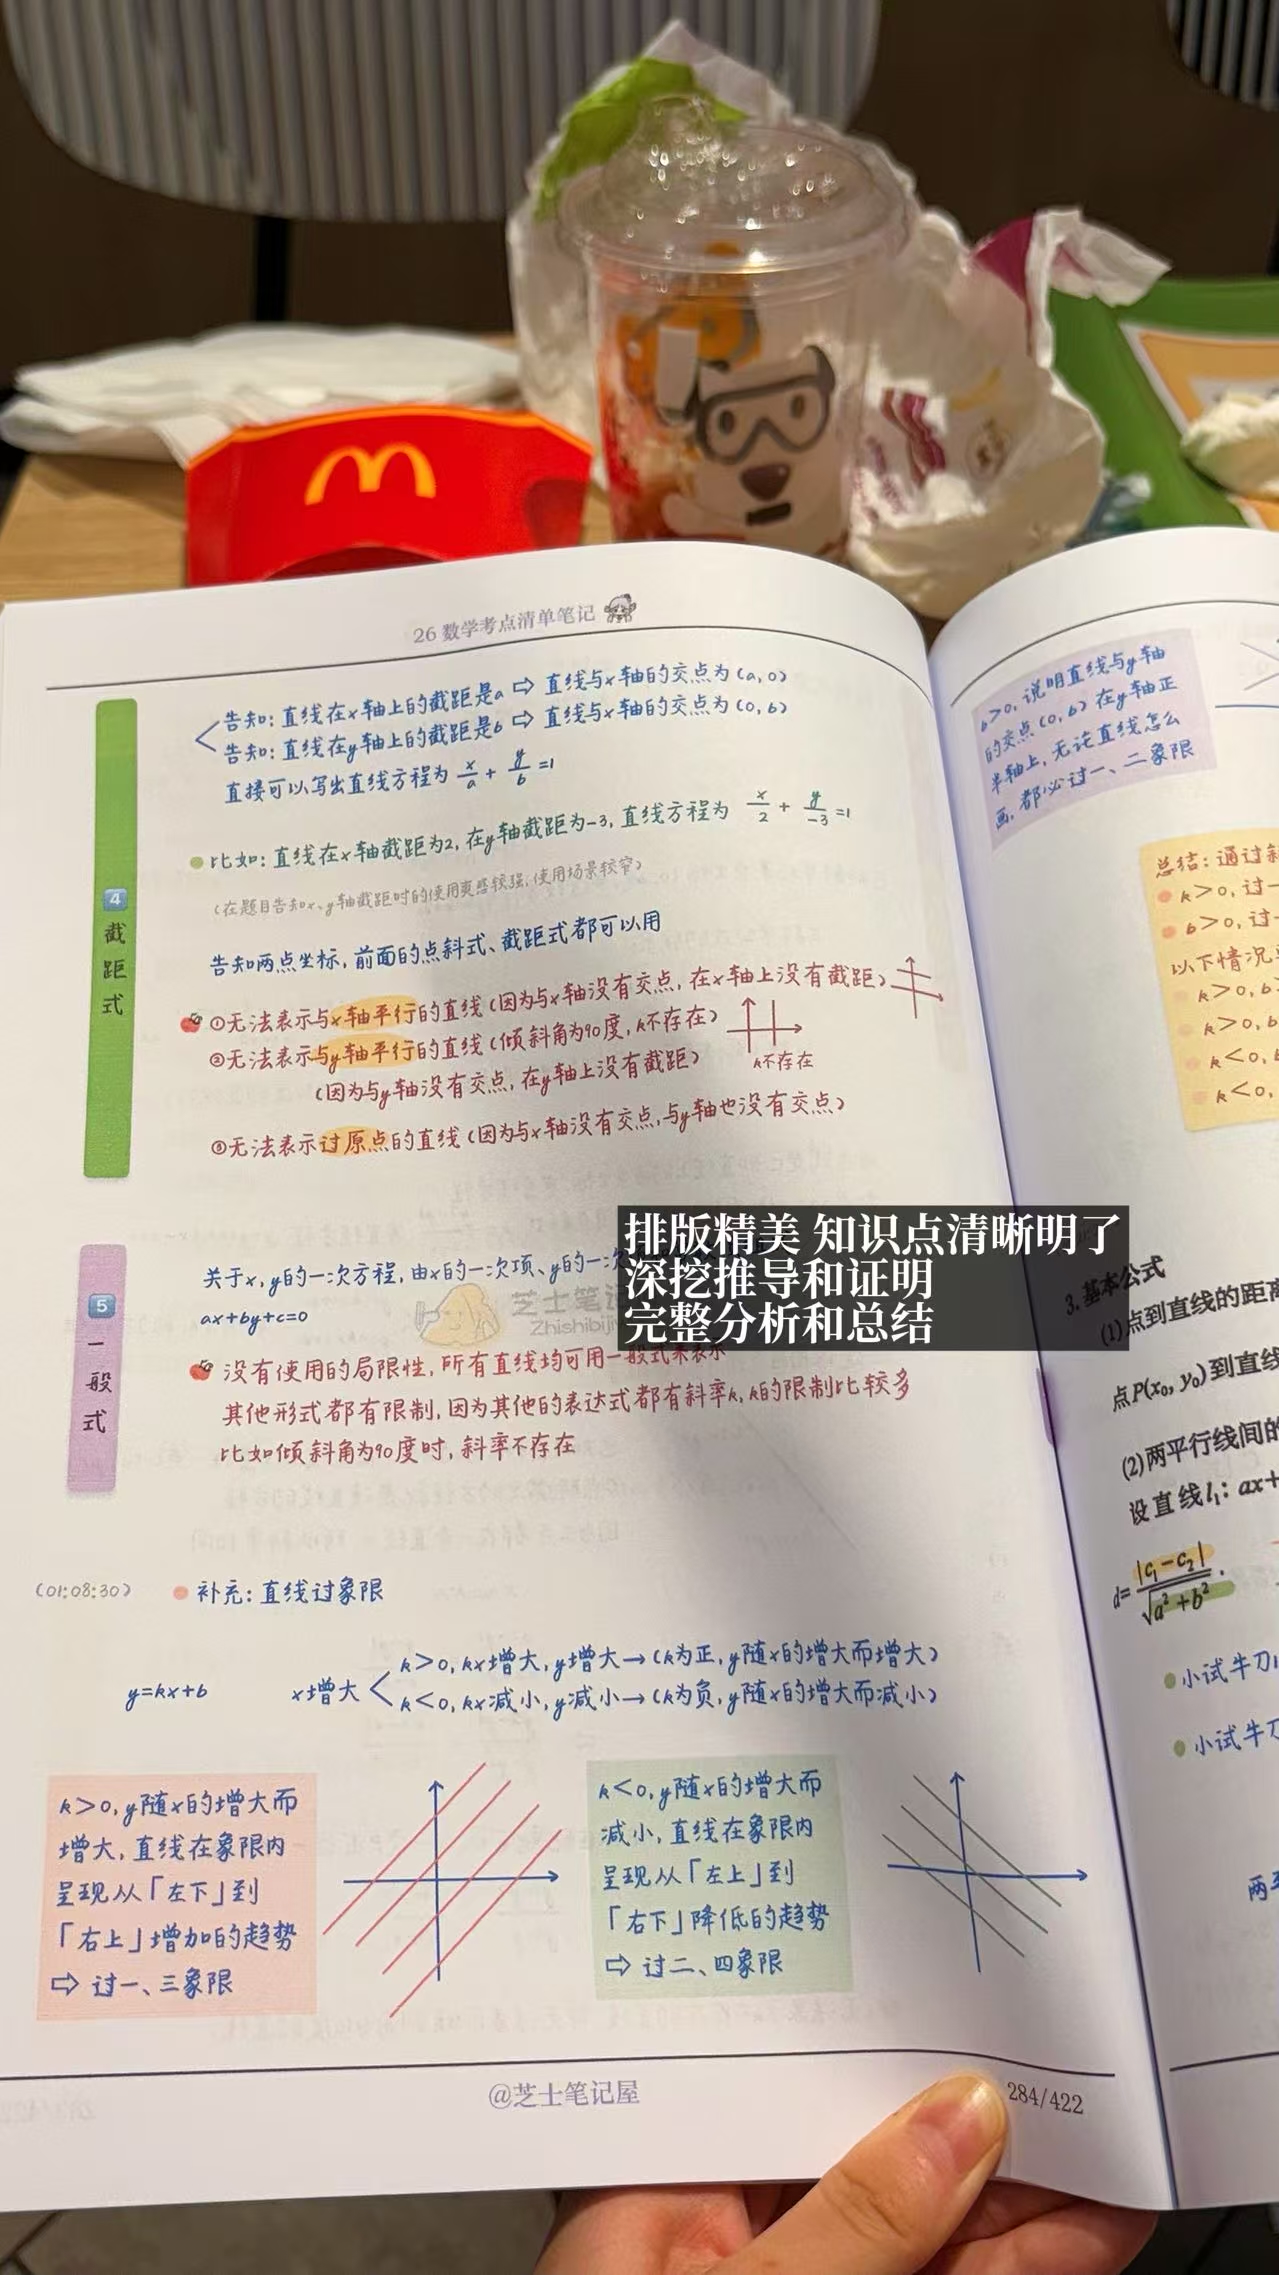 26 数学考点清单笔记
告知:直线在x轴上的截距是a⇨直线与x轴的交点为(a,0)
告知:直线在y轴上的截距是b⇨直线与x轴的交点为(0,b)
直接可以写出直线方程为 x/a + y/b =1
比如:直线在x轴截距为2,在y轴截距为-3,直线方程为 x/2 + y/-3 =1
(在题目告知x、y轴截距时的使用爽感较强,使用场景较窄)
告知两点坐标,前面的点斜式、截距式都可以用
4
截
距
式
①无法表示与x轴平行的直线(因为与x轴没有交点,在x轴上没有截距)
②无法表示与y轴平行的直线(倾斜角为90度,k不存在)
k不存在
(因为与y轴没有交点,在y轴上没有截距)
③无法表示过原点的直线(因为与x轴没有交点,与y轴也没有交点)
排版精美 知识点清晰明了
深挖推导和证明
完整分析和总结
5
一
般
式
关于x,y的一次方程,由x的一次项、y的一次
ax+by+c=0
芝士笔记
Zhishibiji
没有使用的局限性,所有直线均可用一般式来表示
其他形式都有限制,因为其他的表达式都有斜率k,k的限制比较多
比如倾斜角为90度时,斜率不存在
(01:08:30)
补充:直线过象限
y=kx+b
x增大
k>0,kx增大,y增大→(k为正,y随x的增大而增大)
k<0,kx减小,y减小→(k为负,y随x的增大而减小)
k>0,y随x的增大而
增大,直线在象限内
呈现从「左下」到
「右上」增加的趋势
⇨ 过一、三象限
k<0,y随x的增大而
减小,直线在象限内
呈现从「左上」到
「右下」降低的趋势
⇨ 过二、四象限
@芝士笔记屋
284/422
b>0,说明直线与y轴
的交点(0,b)在y轴正
半轴上,无论直线怎么
画,都必过一、二象限
总结:通过
k>0,过一
b>0,过
以下情况
k>0,b
k>0,b
k<0,b
k<0,
3.基本公式
(1)点到直线的距离
点P(x₀,y₀)到直线
(2)两平行线间的
设直线l₁:ax+
d=|c₁-c₂|/√a²+b².
小试牛刀
小试牛刀